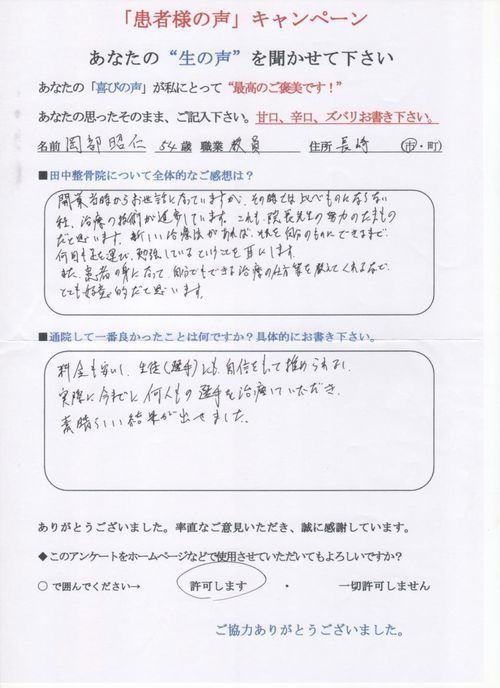 「患者様の声」キャンペーン
あなたの“生の声”を聞かせて下さい
あなたの「喜びの声」が私にとって“最高のご褒美です！”
あなたの思ったそのまま、ご記入下さい。甘口、辛口、ズバリお書き下さい。
名前 岡部昭仁 54歳 職業 教員 住所 長崎 市・町
■田中整骨院について全体的なご感想は？
開業当時からお世話になっていますが、その時とは比べものにならない
程、治療の技術が進歩しています。これも、院長先生の努力のたまもの
だと思います。新しい治療法があれば、それを自分のものにできるまで
何回も足を運び、勉強しているということを耳にします。
また、患者の身になって、自分でもできる治療の仕方等を教えてくれるなど、
とても好意的だと思います。
■通院して一番良かったことは何ですか？具体的にお書き下さい。
料金も安いし、生徒（選手）にも、自信をもって推められるし、
実際に今までに何人もの選手を治療していただき、
素晴らしい結果が出せました。
ありがとうございました。率直なご意見いただき、誠に感謝しています。
◆このアンケートをホームページなどで使用させていただいてもよろしいですか？
○で囲んでください→ 許可します ・ 一切許可しません
ご協力ありがとうございました。